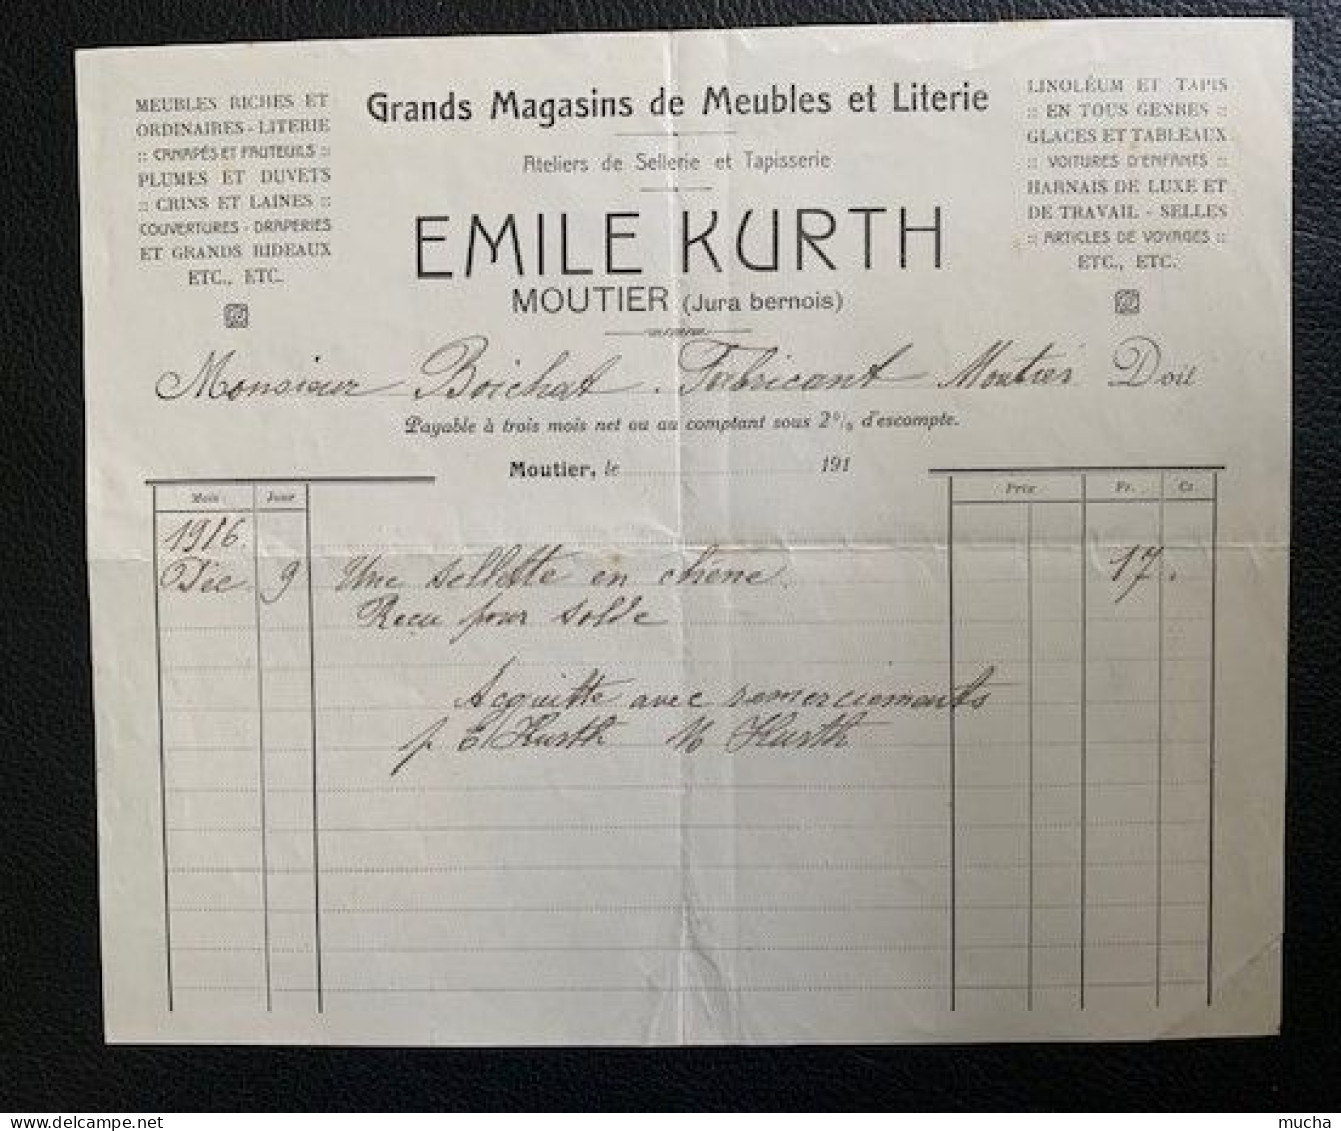 MEUBLES RICHES ET
ORDINAIRES - LITERIE
:: CANAPÉS ET FAUTEUILS ::
PLUMES ET DUVETS
:: CRINS ET LAINES ::
COUVERTURES - DRAPERIES
ET GRANDS RIDEAUX
ETC., ETC.
Grands Magasins de Meubles et Literie
Ateliers de Sellerie et Tapisserie
EMILE KURTH
MOUTIER (Jura bernois)
LINOLÉUM ET TAPIS
:: EN TOUS GENRES ::
GLACES ET TABLEAUX
:: VOITURES D'ENFANTS ::
HARNAIS DE LUXE ET
DE TRAVAIL - SELLES
:: ARTICLES DE VOYAGES ::
ETC., ETC.
Monsieur Boichat. Fabricant Moutier Doit
Payable à trois mois net ou au comptant sous 2% d'escompte.
Moutier, le 191
Mois Jour Prix Fr. Ct.
1916.
Déc. 9 Une sellette en chêne. 17.
Reçu pour solde
Acquitté avec remerciements
p. E Kurth M Kurth
mucha